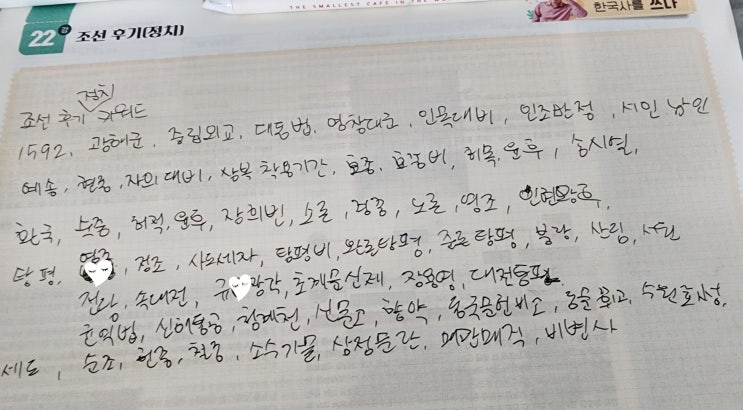 THE SMALLEST CAFE IN THE
한국사를 쓰다
22강 조선 후기(정치)
정치
조선 후기 키워드
1592, 광해군, 중립외교, 대동법, 영창대군, 인목대비, 인조반정, 서인 남인
예송, 현종, 자의대비, 상복 착용기간, 효종, 효종비, 허목, 윤휴, 송시열,
환국, 숙종, 허적, 윤휴, 장희빈, 소론, 경종, 노론, 영조, 인현왕후,
탕평, 정조, 사도세자, 탕평비, 완론탕평, 준론탕평, 붕당, 산림, 서원
전랑, 속대전, 규장각, 초계문신제, 장용영, 대전통편
균역법, 신해통공, 청계천, 신문고, 향약, 동국문헌비고, 동문휘고, 수원 화성,
세도, 순조, 헌종, 철종, 소수가문, 삼정문란, 매관매직, 비변사